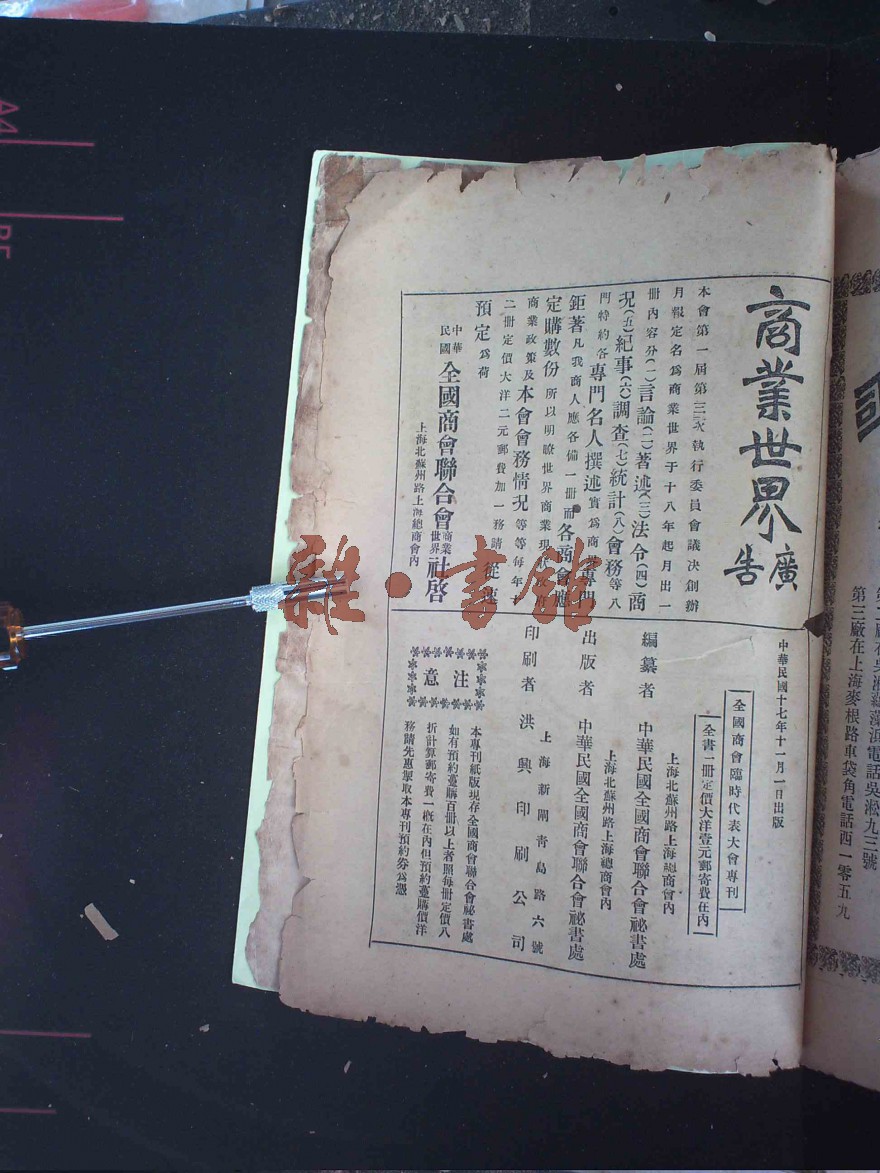 商業世界廣告
本會第一屆第三次執行委員會議決創辦
月報定名爲商業世界于十八年起月出一
冊內容分(一)言論(二)著述(三)法令(四)商
況(五)紀事(六)調查(七)統計(八)會務等八
門特約各專門名人撰述實爲商
鉅著凡我商人應各備一冊而各商會應
定購數份所以明瞭世界商業現
商業政策及本會會務情況等等每年十
二冊定價大洋二元郵費加一務請從速
預定爲荷
中華民國全國商會聯合會商業世界社啓
上海北蘇州路上海總商會內
中華民國十七年十一月一日出版
全國商會臨時代表大會專刊
全書一冊定價大洋壹元郵寄費在內
上海北蘇州路上海總商會內
編纂者 中華民國全國商會聯合會祕書處
上海北蘇州路上海總商會內
出版者 中華民國全國商會聯合會祕書處
上海新閘靑島路六號
印刷者 洪興印刷公司
注意
本專刊紙版現存全國商會聯合會祕書處
如有預約躉購百冊以上者照每冊定價八
折計算郵寄費一概在內但預約躉購價洋
務請先惠掣取本專刊預約券爲憑
電話吳淞九三號
第三廠在上海麥根路車袋角電話西一零五九
雜·書館
A4